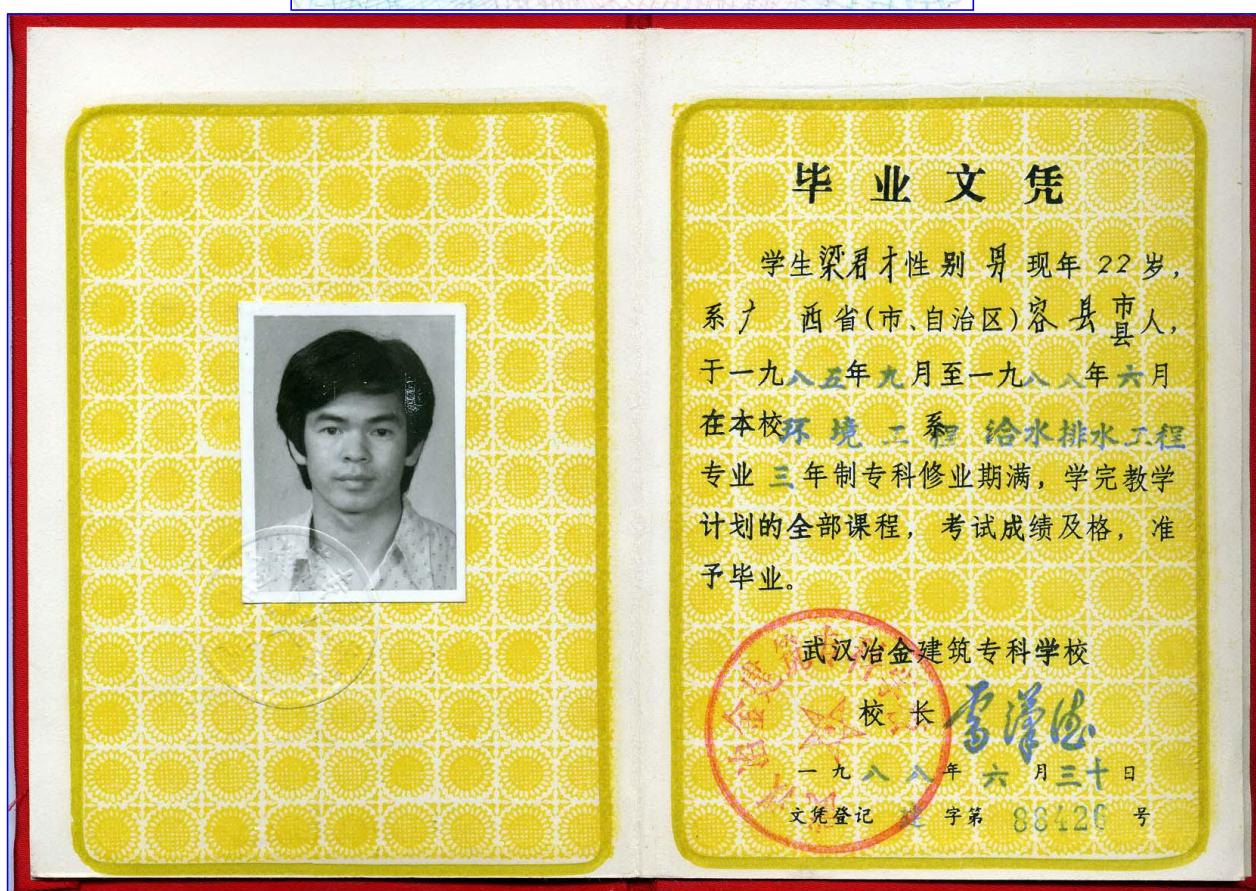 毕业文凭
学生梁君才性别 男 现年 22 岁，
系广 西省(市、自治区)容县市县人，
于一九八五年九月至一九八八年六月
在本校环境工程系给水排水工程
专业三年制专科修业期满，学完教学
计划的全部课程，考试成绩及格，准
予毕业。
武汉冶金建筑专科学校
校 长 雷汉德
一九八八年六月三十日
文凭登记 建 字第 88426 号
武汉冶金建筑专科学校